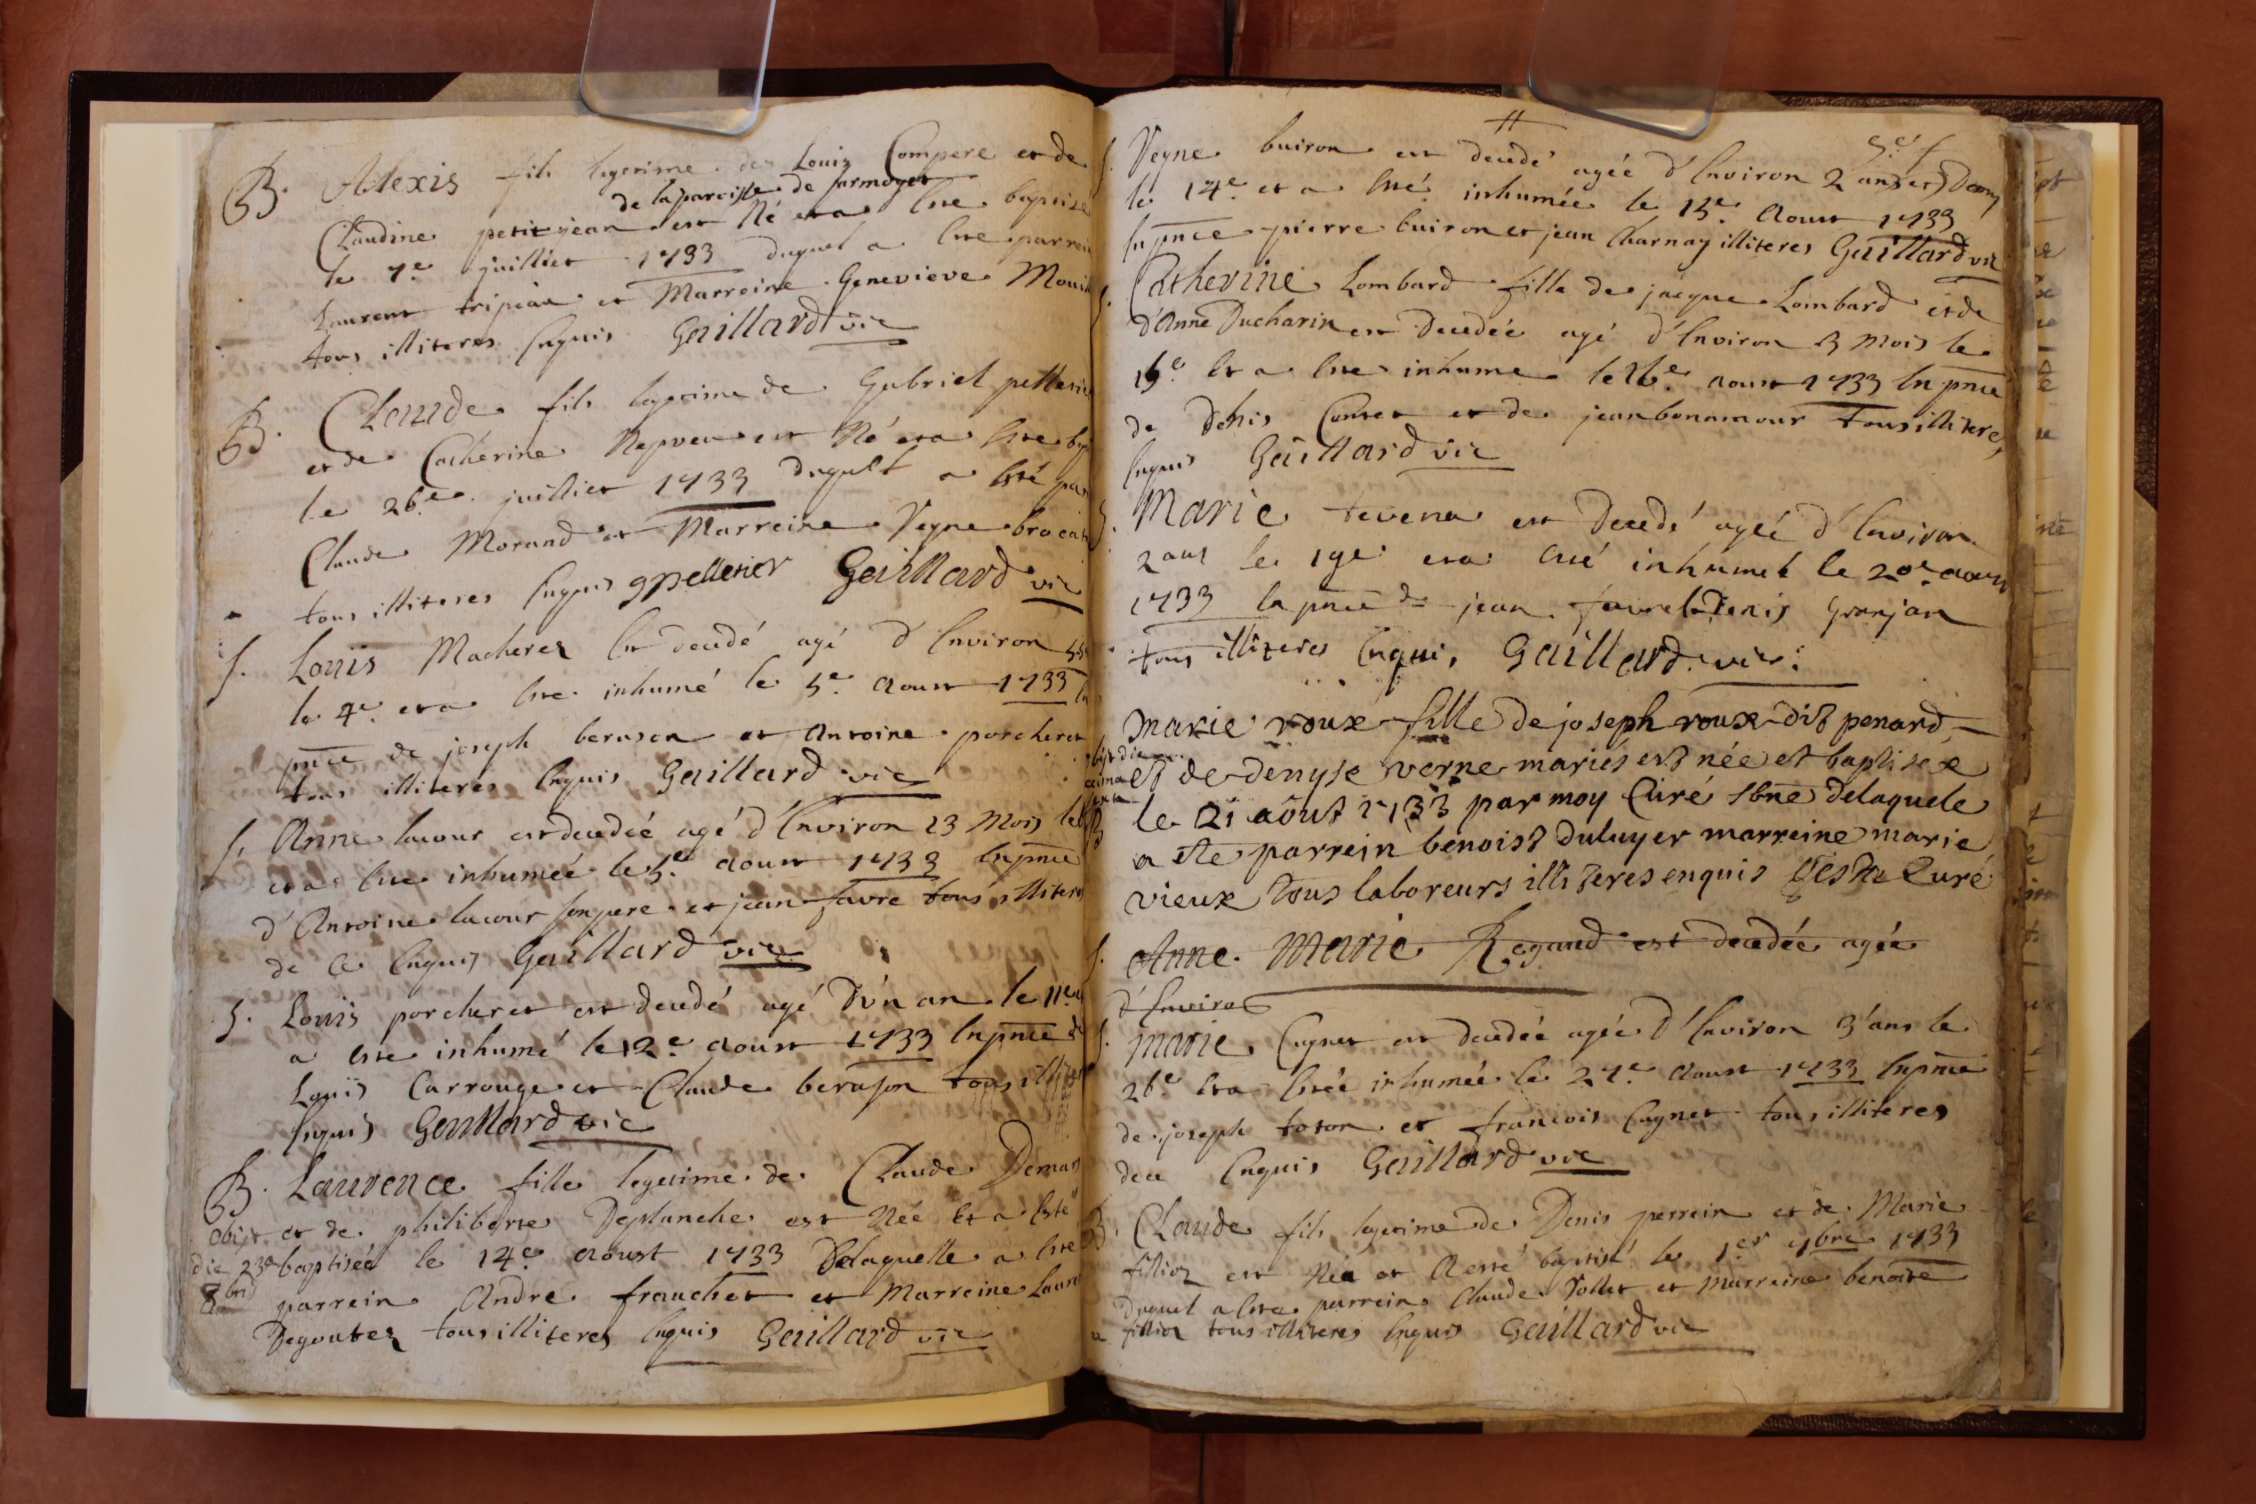 B. Alexis fils legitime de Louis Compere et de
de la paroisse de
Claudine petit jean est Né et a Este baptizé
le 7e juilliet 1733 duquel a Este parrein
Laurent tripier et Marreine Genevieve
tous illiteres Enquis Gaillard vic
B. Claude fils legitime de Gabriel
et de Catherine Nepveu est Né et a Este
le 26e juilliet 1733 duquel a Esté
Claude Morand et Marreine Reyne
tous illiteres Enquis gpelletier Gaillard vic
S. Louis Macherez Est decedé agé d'Environ
le 4e et a Este inhumé le 5e Aoust 1733
pnce de joseph berujon et Antoine porcheret
tous illiteres Enquis Gaillard vic
S. Anne lacour est decedée agé d'Environ 23 Mois le
et a Este inhumée le 5e Aoust 1733 En pnce
d'Antoine lacour son pere et jean favre tous illiteres
de ce Enquis Gaillard vic
S. Louis porcheret est decedé agé D'un an le 11e
a Este inhumé le 12e Aoust 1733 En pnce de
Louis Carrouge et Claude berujon tous
Enquis Gaillard vic
B. Laurence fille legitime de Claude
obijt et de philiberte Deplanche est Née Et a Esté
die 23e baptisée le 14e Aoust 1733 Delaquelle a Este
8bris parrein André franchet et Marreine
Degoutes tous illiteres Enquis Gaillard vic
S. Reyne buiron est decedé agée d'Environ 2 ans et Demy
le 14e et a Esté inhumée le 15e Aoust 1733
En pnce pierre buiron et jean Charnay illiteres Gaillard vic
Catherine Lombard fille de jacque Lombard et de
d'Anne Ducharin est Decedée agé d'Environ 3 Mois le
Et a Este inhumé le 16e aoust 1733 En pnce
de Denis Contet et de jean bonnamour tous illiteres
Enquis Gaillard vic
Marie tevena est Decedé agée d'Environ
2 ans le 19e et a Esté inhumée le 20e Aoust
1733 En pnce de jean favre et Denis Granjan
tous illiteres Enquis Gaillard vic
marie roux fille de joseph roux dit penard
et de denyse verne mariés est née et baptisée
le 21 août 1733 par moy Curé sbne delaquele
a ete parrein benoist duluyer marreine marie
vieux tous laboreurs illiteres enquis Curé
S. Anne Marie Regaud est decedée agée
d'Environ
S. Marie Cugnet est decedée agée d'Environ 3 ans le
26e Et a Estée inhumée le 27e Aoust 1733 En pnce
de joseph toton et francois Cugnet tous illiteres
dece Enquis Gaillard vic
B. Claude fils legitime de Denis perrein et de Marie
fillion est Née et A esté baptisé le 1er 7bre 1733
Duquel a Este parrein Claude Vollet et Marreine benoite
fillion tous illiteres Enquis Gaillard vic